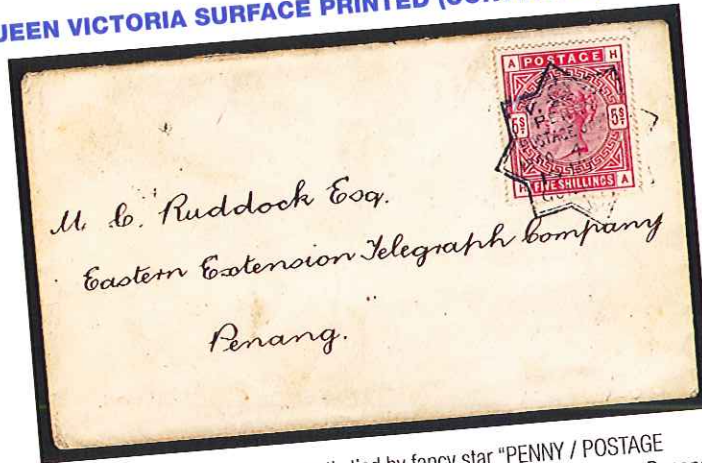 UEEN VICTORIA SURFACE PRINTED
A POSTAGE H
5s. 5s.
PENNY
FIVE SHILLINGS A
M. C. Ruddock Esq.
Eastern Extension Telegraph Company
Penang.
tied by fancy star "PENNY / POSTAGE